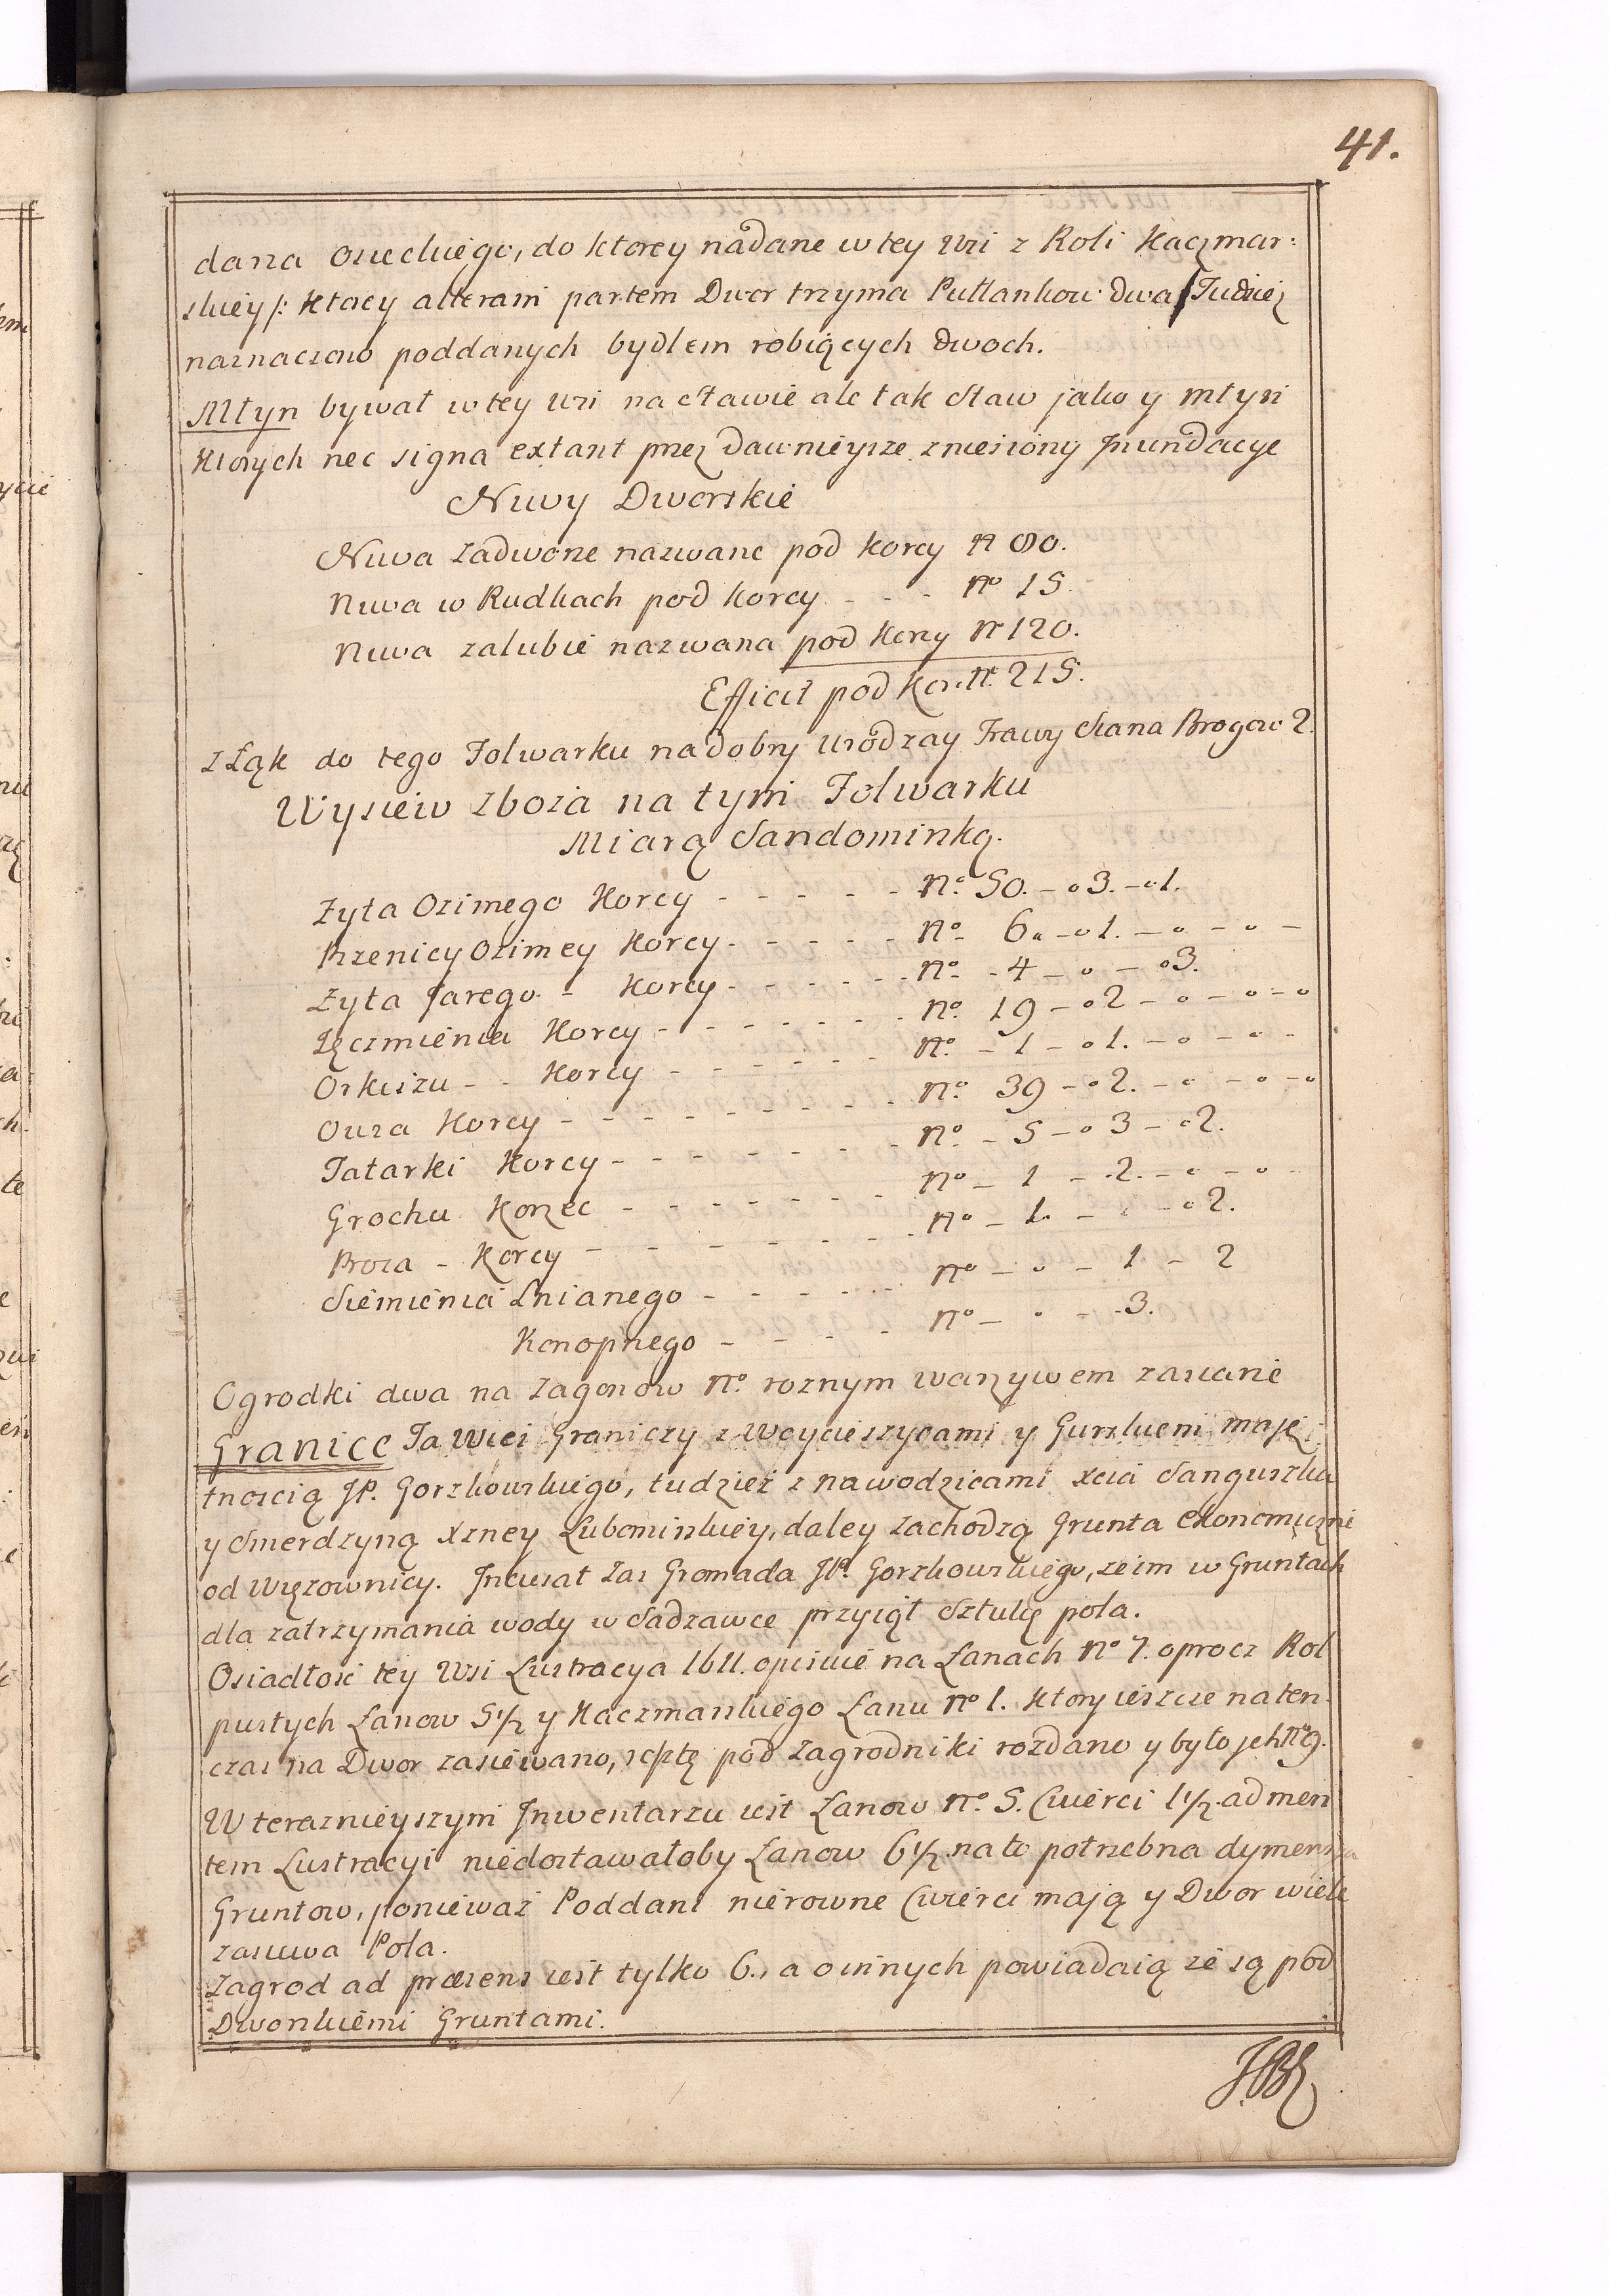 41.
dana Osieckiego, do ktorey nadane w tey Wsi z Roli Kaczmar:
skiey /: ktorey alteram partem Dwor trzyma Pułłankow dwa / Tudziez
naznaczono poddanych bydłem robiących dwoch.
Młyn bywał w tey Wsi na Stawie ale tak Staw jako y młyn
ktorych nec signa extant przez dawnieysze zniesiony Jnundacye
Niwy Dworskie
Niwa Zadworze nazwane pod korcy N 80.
Niwa w Rudkach pod korcy - - - No 15.
Niwa zalubie nazwana pod Korcy No 120.
Efficit pod Kor. No. 215.
Z Łąk do tego Folwarku na dobry Urodzay Trawy Siana Brogow 2.
Wysiew zboża na tym Folwarku
Miarą Sandomirską.
Zyta Ozimego Korcy - - - - - No. 50. - o 3. - o 1.
Pszenicy Ozimey Korcy - - - - - No. 6. - o 1. - o - o -
Zyta Jarego - Korcy - - - - - No. - 4 - o - o 3.
Jęczmienia Korcy - - - - - - No. 19 - o 2 - o - o - o
Orkiszu - - Korcy - - - - - No. - 1 - o 1. - o - o -
Owsa Korcy - - - - - - - - No. 39 - o 2. - o - o - o
Tatarki Korcy - - - - - - - No. - 5 - o 3 - o 2.
Grochu Korzec - - - - - - No - 1 - 2. - o - o -
Prosa - Korcy - - - - - - - No - 1. - - o 2.
Siemienia Lnianego - - - - - No - o - 1 - 2
Konopnego - - - - No - o - - 3.
Ogrodki dwa na Zagonow No. roznym warzywem zasiane
Granice Ta Wies Graniczy z Woycieszycami y Gurzkiem maję:
tnoscią JP. Gorzkowskiego, tudzież z nawodzicami Xcia Sanguszka
y Smerdzyną Xzney Lubomirskiey, daley zachodzą Grunta Ekonomiczne
od Więzownicy. Jncusat Zas Gromada JP. Gorzkowskiego, ze im w Gruntach
dla zatrzymania wody w Sadzawce przyiął Sztukę pola.
Osiadłosc tey Wsi Lustracya 1611. opisuie na Łanach No 7. oprocz Rol
pustych Łanow 5 1/2 y Kaczmarskiego Łanu No 1. ktory ieszcze na ten
czas na Dwor zasiewano, resztę pod Zagrodniki rozdano y było jch No 9.
W teraznieyszym Jnwentarzu iest Łanow No. 5. Cwierci 1 1/2. ad men
tem Lustracyi niedostawałoby Łanow 6 1/2. na to potrzebna dymensya
Gruntow, ponieważ Poddani nierowne Cwierci mają y Dwor wiele
zasiewa Pola.
Zagrod ad præsens iest tylko 6., a o innych powiadaią ze są pod
Dworskiemi Gruntami.